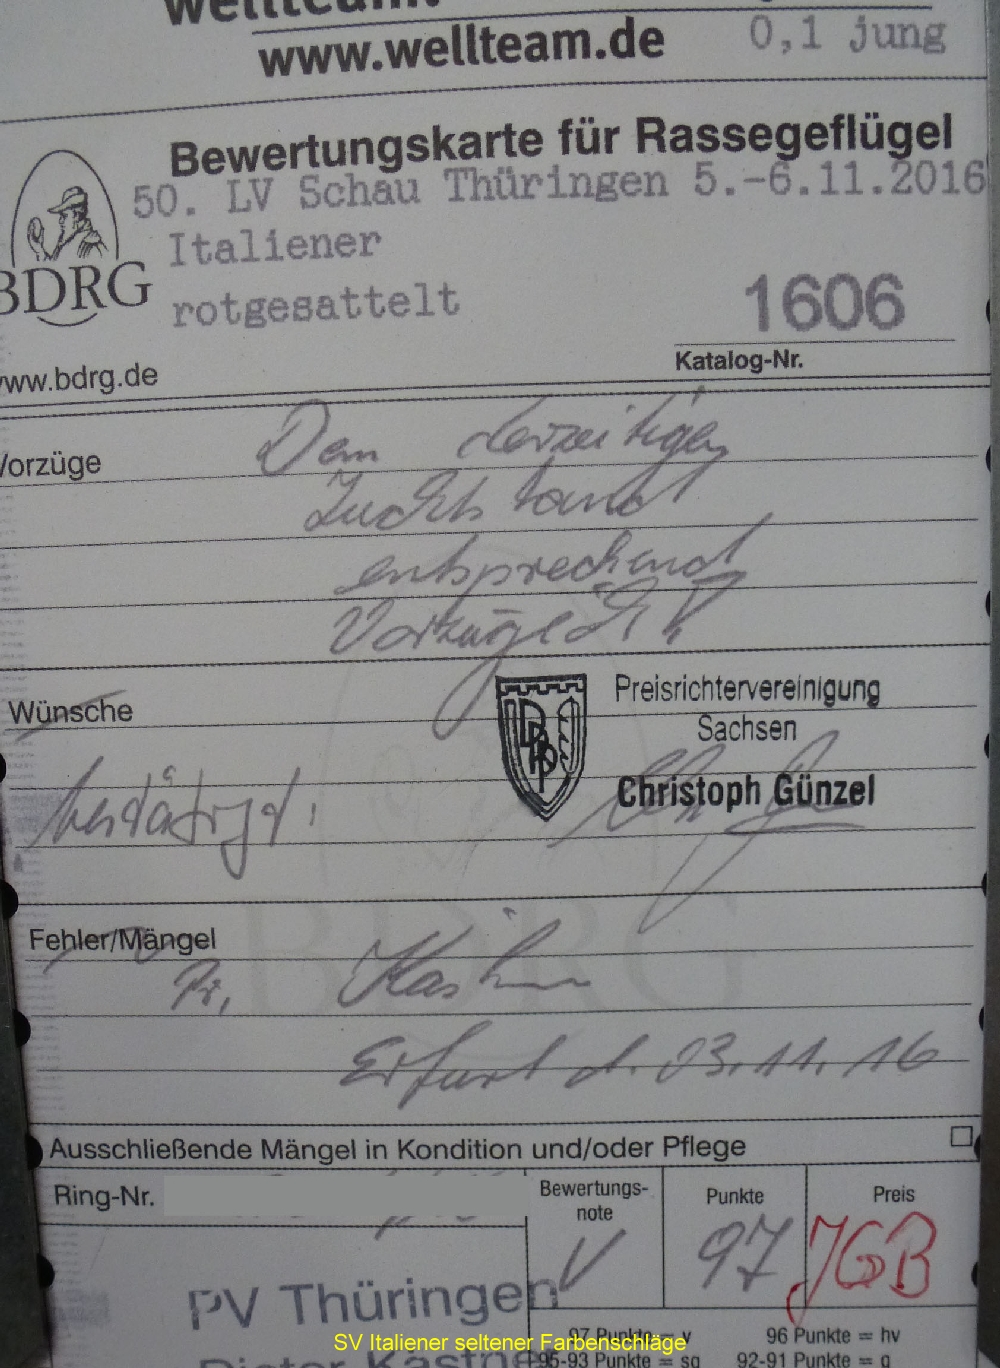 wellteam.
www.wellteam.de
0,1 jung
Bewertungskarte für Rassegeflügel
50. LV Schau Thüringen 5.-6.11.2016
Italiener
rotgesattelt
BDRG
1606
Katalog-Nr.
www.bdrg.de
Vorzüge
Dem derzeitigen
Zuchtstand
entsprechend
Vorzüge
Wünsche
Preisrichtervereinigung
Sachsen
Christoph Günzel
bestätigt!
Fehler/Mängel
Pr.
Erfurt d. 03.11.16
Ausschließende Mängel in Kondition und/oder Pflege
Ring-Nr.
Bewertungs-
note
Punkte
Preis
V
97
JGB
PV Thüringen
97 Punkte = v
96 Punkte = hv
95-93 Punkte = sg
92-91 Punkte = g
Dieter Kastne
SV Italiener seltener Farbenschläge